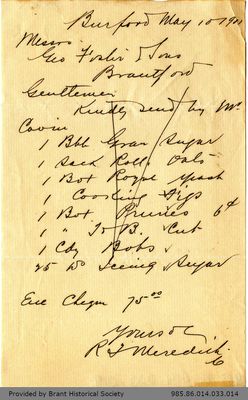 Burford May 10 190
Messrs
Geo Foster & Sons
Brantford
Gentlemen
Kindly send by Mr
Cavin
1 Bbl Gran Sugar
1 Sack Rolld Oats
1 Box Royal
1 " Cooking Figs
1 Box Prunes 6¢
1 " T & B. Cut
1 Cdy Bobs
25 lbs Iceing Sugar
Enc Cheque 75.00
Yours &c
R F Meredith
Provided by Brant Historical Society 985.86.014.033.014